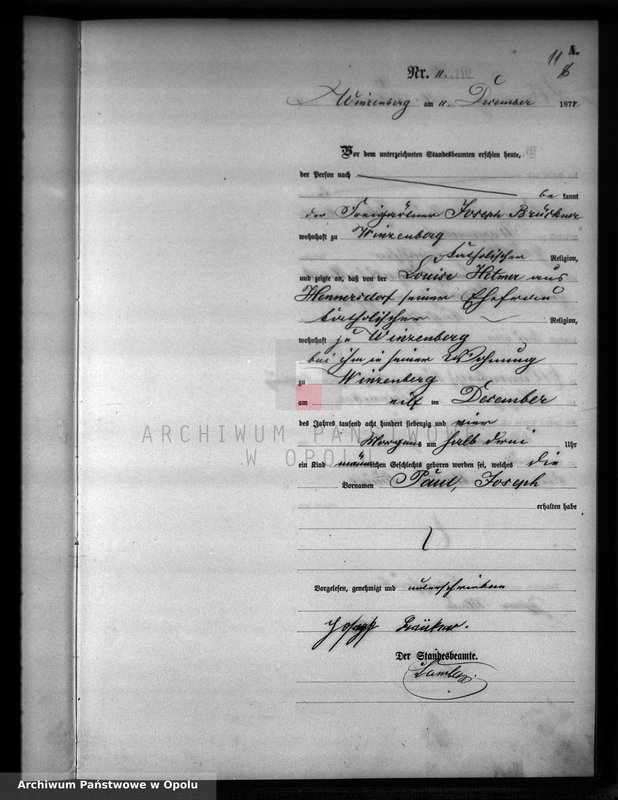 A.
11
Nr. 11.
Winzenberg am 11. December 1874
Vor dem unterzeichneten Standesbeamten erschien heute,
der Person nach
be kannt
der Freigärtner Joseph Brückner
wohnhaft zu Winzenberg
katholischer Religion,
und zeigte an, daß von der Louise Helmer aus
Hennersdorf seiner Ehefrau
katholischer Religion,
wohnhaft zu Winzenberg
bei ihm in seiner Wohnung
zu Winzenberg
am eilf ten December
des Jahres tausend acht hundert siebenzig und vier
Morgens um halb drei Uhr
ein Kind männlichen Geschlechts geboren worden sei, welches die
Vornamen Paul, Joseph
erhalten habe
Vorgelesen, genehmigt und unterschrieben
Joseph Brückner.
Der Standesbeamte.
ARCHIWUM PAŃSTWOWE
W OPOLU
Archiwum Państwowe w Opolu